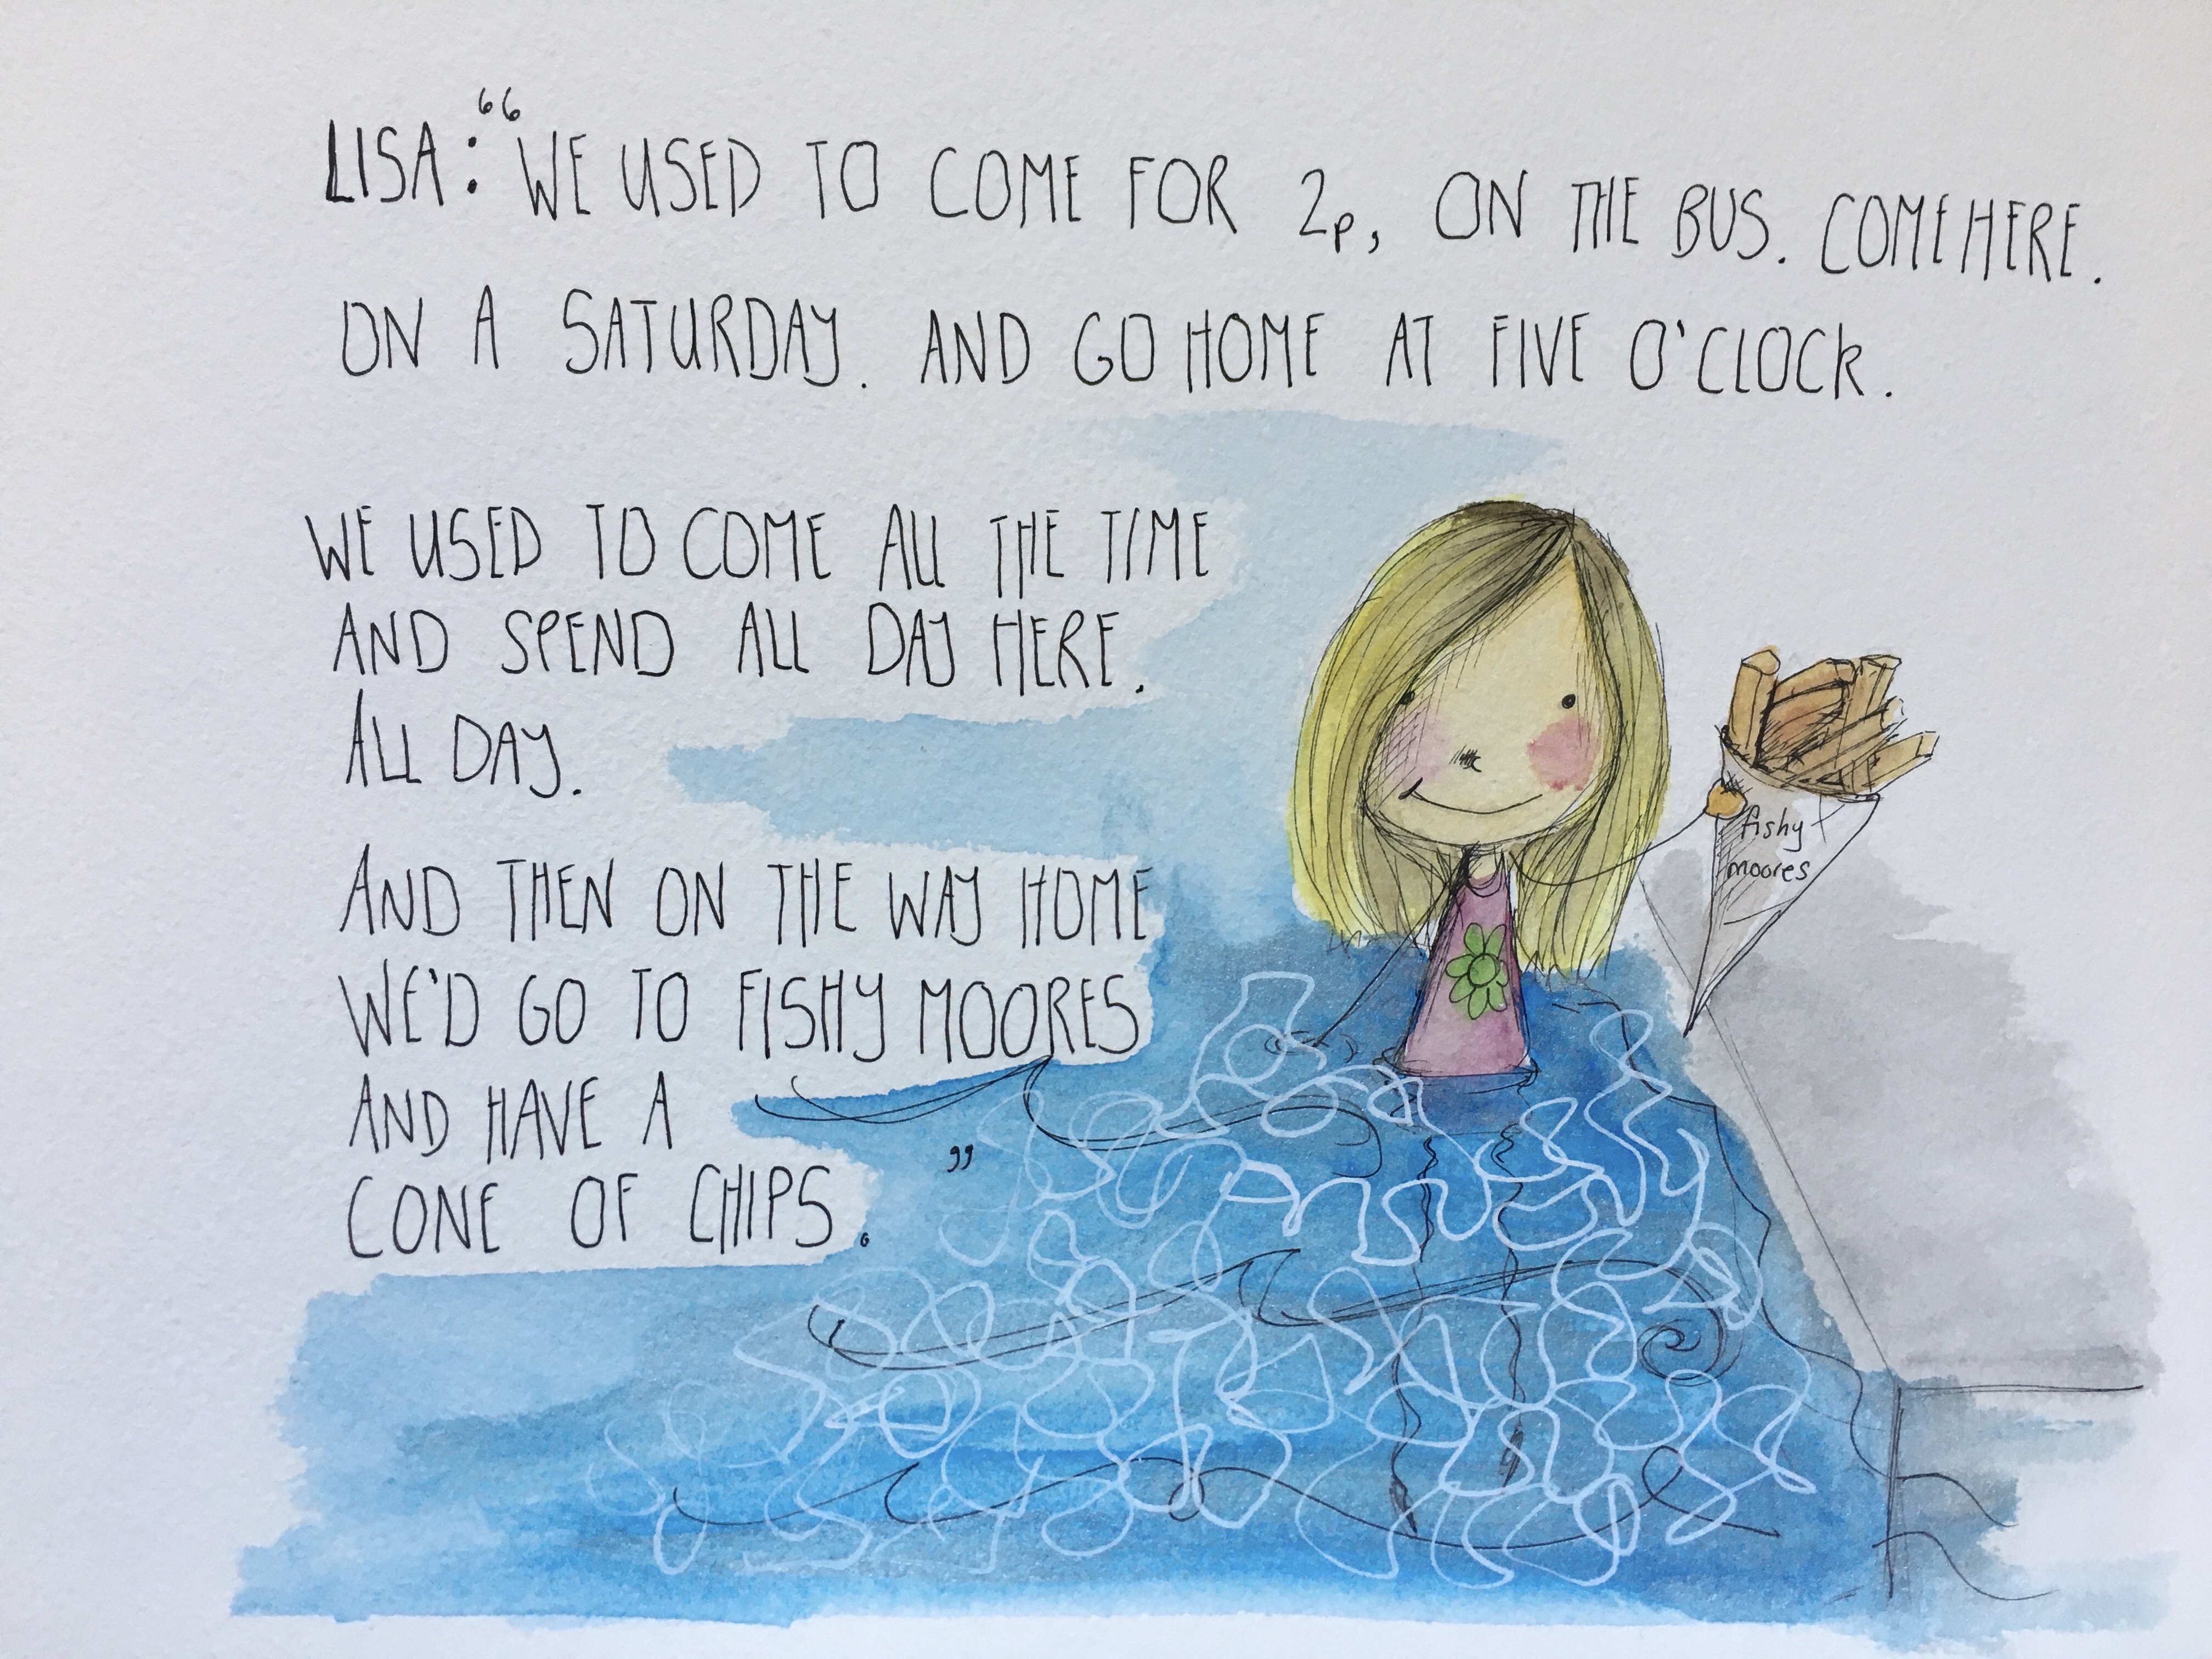 LISA: “WE USED TO COME FOR 2p, ON THE BUS. COME HERE.
ON A SATURDAY. AND GO HOME AT FIVE O'CLOCK.
WE USED TO COME ALL THE TIME
AND SPEND ALL DAY HERE.
ALL DAY.
AND THEN ON THE WAY HOME
WE'D GO TO FISHY MOORES
AND HAVE A
CONE OF CHIPS.”
fishy
moores